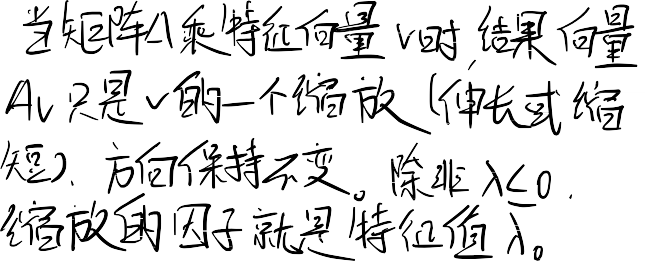 当矩阵A乘特征向量v时,结果向量
Av只是v的一个缩放(伸长或缩
短)、方向保持不变。除非λ≤0,
缩放的因子就是特征值λ。